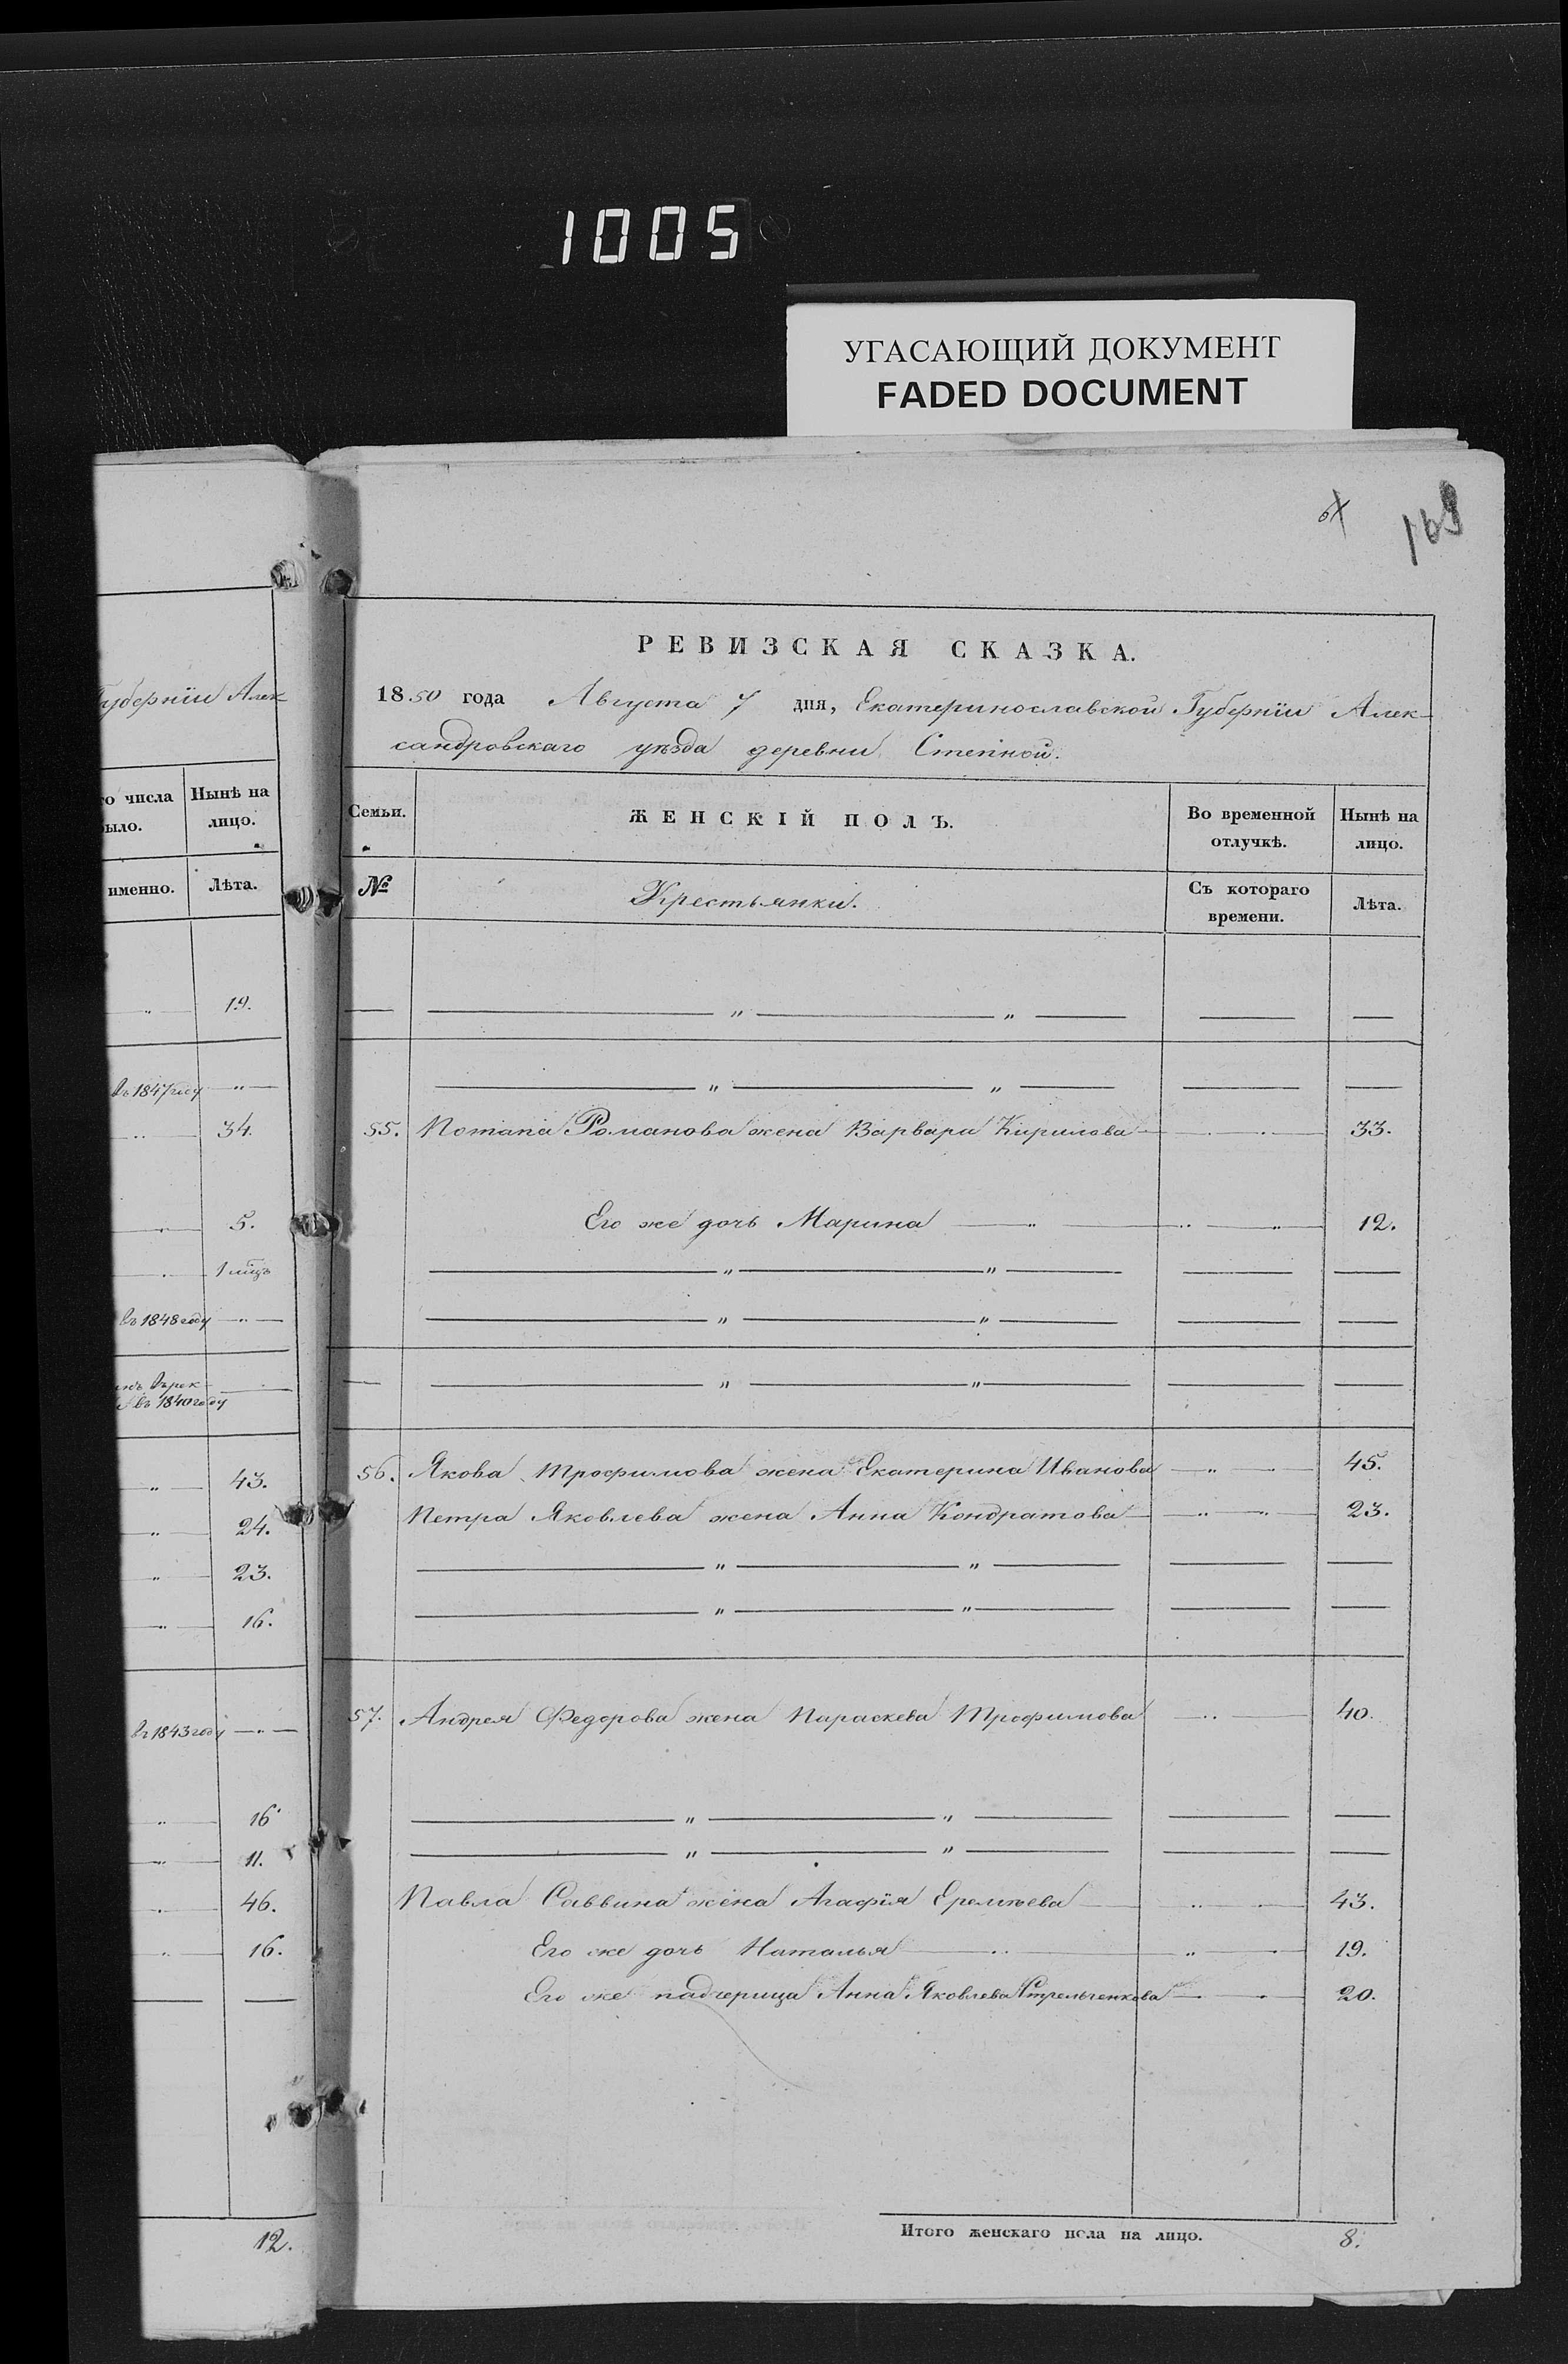 1005
УГАСАЮЩИЙ ДОКУМЕНТ
FADED DOCUMENT
169
РЕВИЗСКАЯ СКАЗКА.
губернїи Алек
1850 года Августа 7 дня, Екатеринославской Губернїи Алек-
сандровскаго уѣзда деревни Степной.
го числа Нынѣ на
было. лицо.
именно. Лѣта.
Семьи. ЖЕНСКІЙ ПОЛЪ. Во временной Нынѣ на
отлучкѣ. лицо.
№ Крестьянки. Съ котораго Лѣта.
времени.
19.
въ 1847 году
34.
55. Потапа Романова жена Варвара Кирилова 33.
5.
Его же дочь Марина 12.
1 мцъ
въ 1848 году
въ 1840 году
43.
56. Якова Трофимова жена Екатерина Иванова 45.
24.
Петра Яковлева жена Анна Кондратова 23.
23.
16.
въ 1843 году
57. Андрея Федорова жена Параскева Трофимова 40.
16
11.
46.
Павла Саввина жена Агафїя Еремѣева 43.
16.
Его же дочь Наталья 19.
Его же падчерица Анна Яковлева Стрельченкова 20.
12.
Итого женскаго пола на лицо. 8.